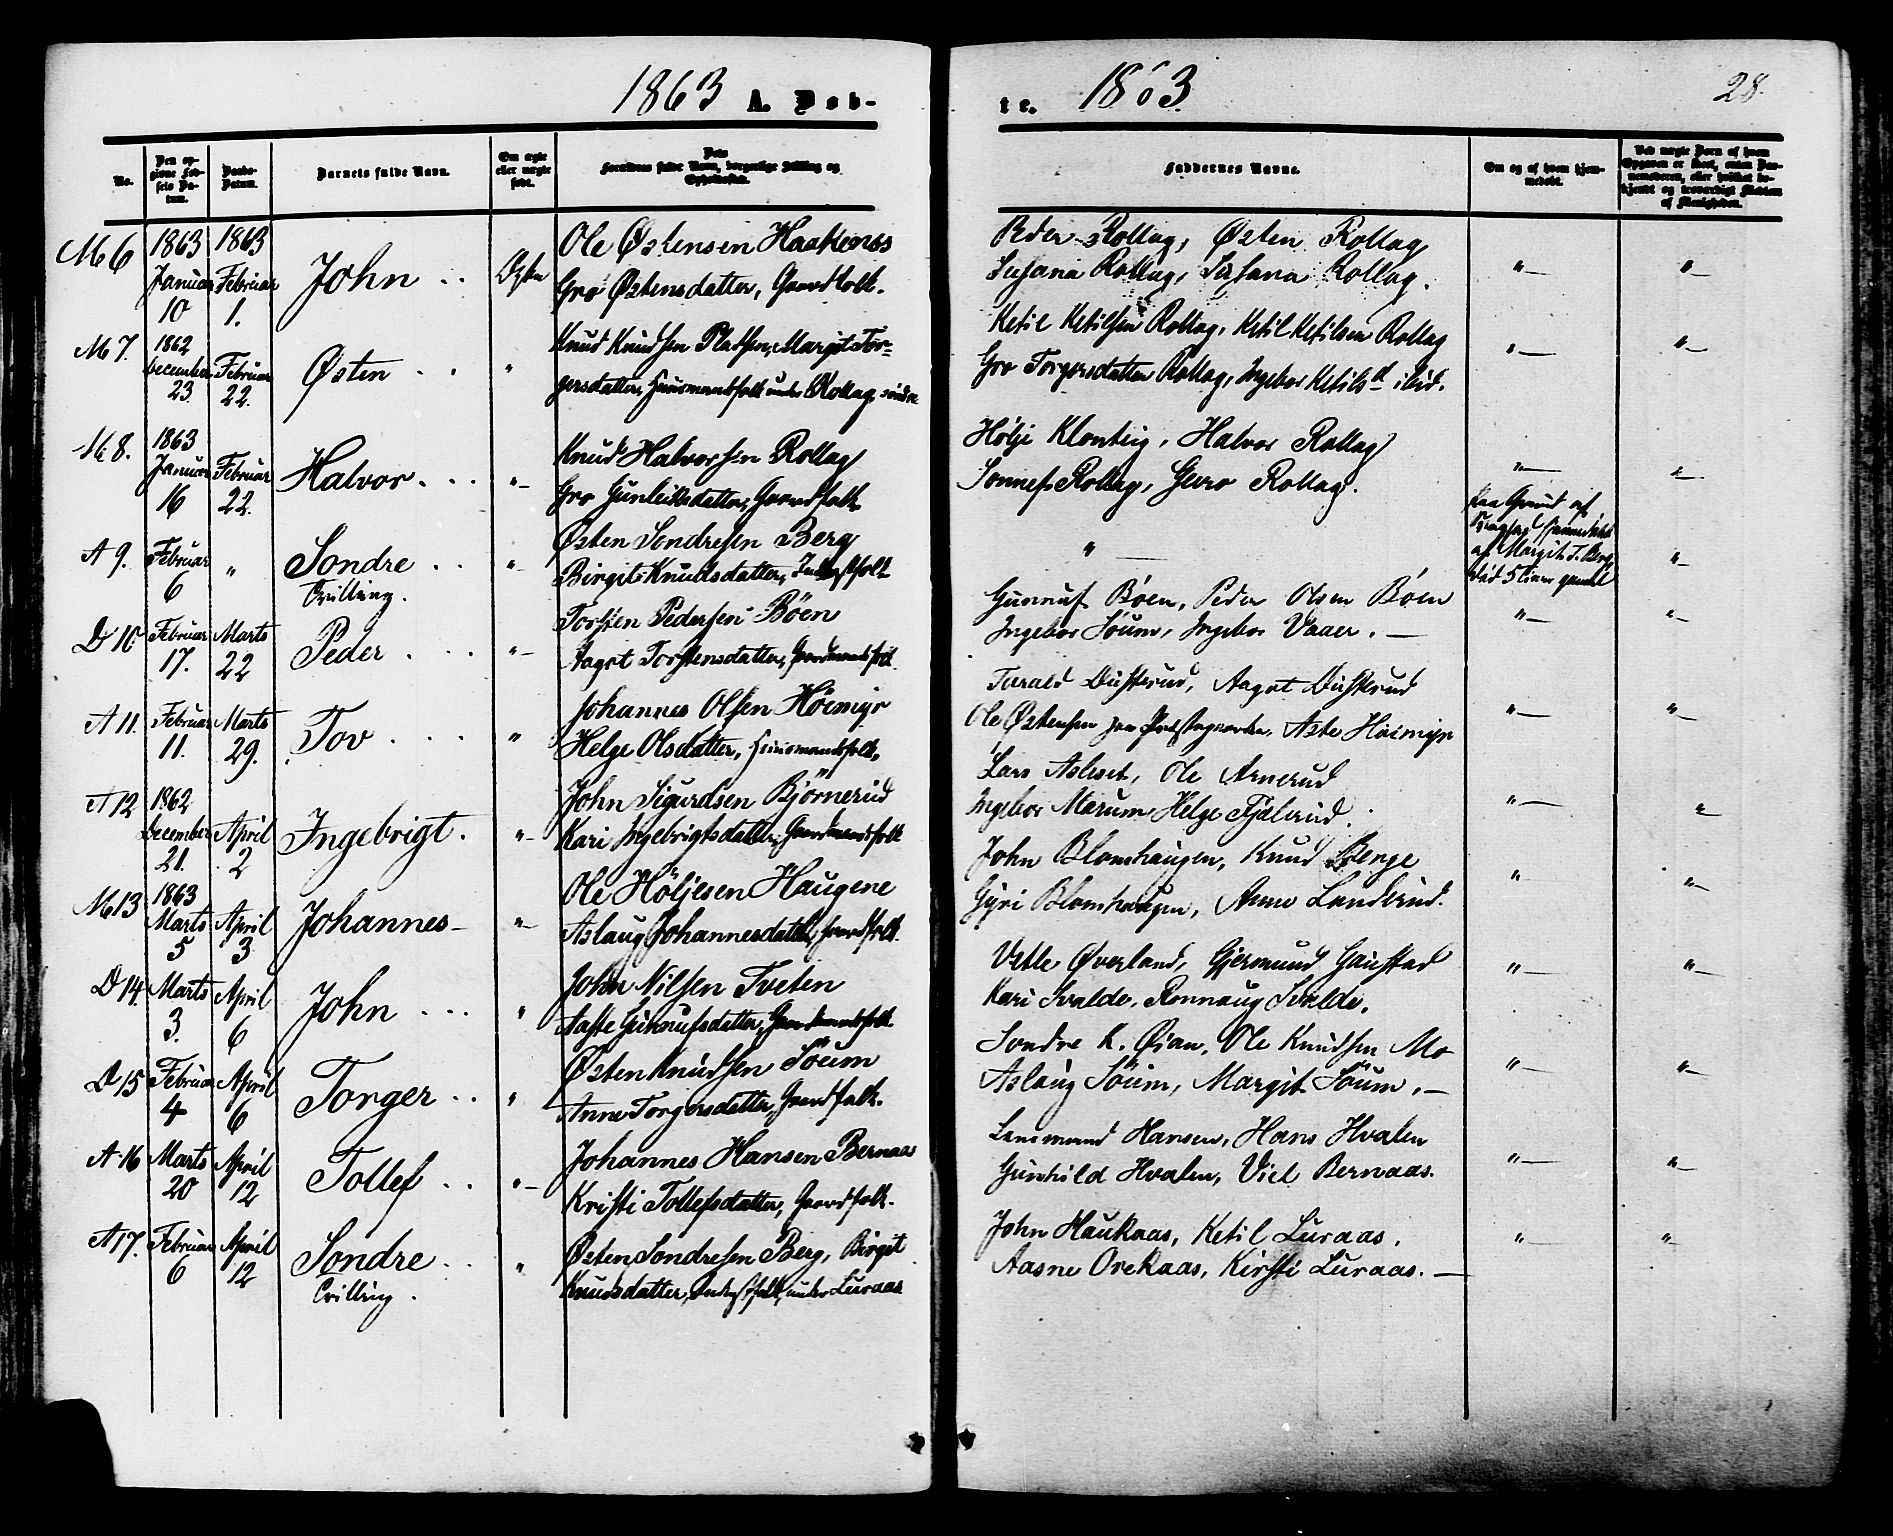 1863 A. Døb-
te. 1863. 28.
No.
Den opgivne Fødsels Datum.
Daabs-Datum.
Barnets fulde Navn.
Om ægte eller uægte født.
Dets Forældres fulde Navn, borgerlige Stilling og Opholdssted.
Faddernes Navne.
Om og af hvem hjemmedøbt.
Ved uægte Børn af hvem Opgaven er skeet, enten Barnemoderen, eller hvilket bekjendt og troværdigt Medlem af Menigheden.
M 6 1863 Januar 10 1863 Februar 1. John Ægte
Ole Østensen Haakenes
Gro Østensdatter, Gaardfolk.
Peder Rollag, Østen Rollag
Susana Rollag, Susana Rollag.
M 7. 1862 December 23. Februar 22. Østen "
Knud Knudsen Pladsen, Margit Tor-
gersdatter, Huusmandsfolk under Rollag søndre
Ketil Ketilsen Rollag, Ketil Ketilsen Rollag
Gro Torgersdatter Rollag, Ingebor Ketilsd ibid.
M 8. 1863 Januar 16 Februar 22. Halvor "
Knud Halvorsen Rollag
Gro Gunleiksdatter, Gaardfolk
Hølje Klonteig, Halvor Rollag
Sonnef Rollag, Gero Rollag.
A 9. Februar 6 " Sondre Tvilling. "
Østen Sondresen Berg
Birgit Knudsdatter, Inderstfolk
paa Grund af
af Margit T. Berg
gammel
D 10. Februar 17. Marts 22 Peder "
Torsten Pedersen Bøen
Aagot Torstensdatter, Gaardmandsfolk
Gunnuf Bøen, Peder Olsen Bøen
Ingebor Søum, Ingebor Vaaer.
A 11. Februar 11. Marts 29. Tov "
Johannes Olsen Høimyr
Helge Olsdatter, Huusmandsfolk.
Tarald Dusterud, Aagot Dusterud
Ole Østensen Præstegaarden, Aste Høimyr
A 12 1862 December 21. April 2 Ingebrigt. "
John Sigurdsen Bjørnerud
Kari Ingebrigtsdatter, Gaardmandsfolk
Lars Asleset, Ole Arnerud
Ingebor Marum Helge Fjølerud.
M 13 1863 Marts 5 April 3 Johannes "
Ole Høljesen Haugene
Aslaug Johannesdatter, Gaardfolk.
John Blomhaugen, Knud Benge
Gyri Blomhaugen, Anne Landerud.
D 14. Marts 3. April 6 John "
John Nilsen Tveten
Aaste Gunnufsdatter, Gaardmandsfolk.
Vetle Øverland, Gjermund Gaustad
Kari Svalde, Rønnaug Svalde.
D 15 Februar 4 April 6 Torger "
Østen Knudsen Søum
Anne Torgersdatter, Gaardfolk.
Sondre K. Øian, Ole Knudsen Mo
Aslaug Søum, Margit Søum.
A 16 Marts 20 April 12 Tollef "
Johannes Hansen Bernaas
Kristi Tollefsdatter, Gaardfolk.
Lensmand Hansen, Hans Hvalen
Gunhild Hvalen, Viel Bernaas.
A 17. Februar 6 April 12 Sondre Tvilling. "
Østen Sondresen Berg, Birgit
Knudsdatter, Inderstfolk, under Luraas
John Haukaas, Ketil Luraas.
Aasne Orekaas, Kirsti Luraas.